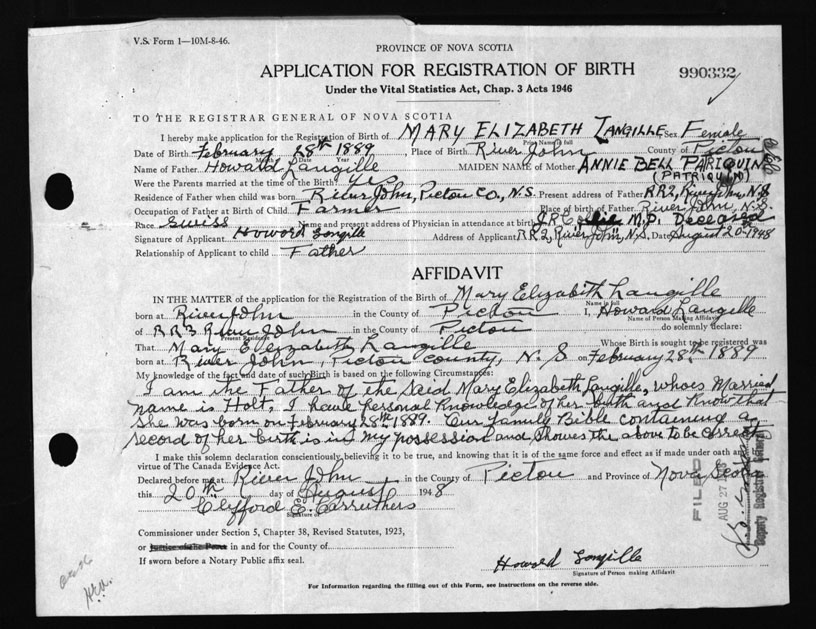 V.S. Form 1—10M-8-46.
PROVINCE OF NOVA SCOTIA
APPLICATION FOR REGISTRATION OF BIRTH
990332
Under the Vital Statistics Act, Chap. 3 Acts 1946
TO THE REGISTRAR GENERAL OF NOVA SCOTIA
I hereby make application for the Registration of Birth of MARY ELIZABETH LANGILLE Sex Female
Print Name in Full
Date of Birth February 28th 1889, Place of Birth River John County of Pictou
Month Date Year
Name of Father Howard Langille MAIDEN NAME of Mother ANNIE BELL PARIQUIN
(PATRIQUIN)
Were the Parents married at the time of the Birth? yes
Residence of Father when child was born River John, Pictou Co., N.S. Present address of Father RR2, River John, N.S.
Occupation of Father at Birth of Child Farmer Place of birth of Father River John, N.S.
Race Swiss Name and present address of Physician in attendance at birth J.R. M.D. Deceased
Signature of Applicant Howard Langille Address of Applicant R.R.2, River John, N.S. Date August 20-1948
Relationship of Applicant to child Father
AFFIDAVIT
IN THE MATTER of the application for the Registration of the Birth of Mary Elizabeth Langille
Name in full
born at River John in the County of Pictou I, Howard Langille
Name of Person Making Affidavit
of R R 3 River John in the County of Pictou do solemnly declare:
Present Residence
That Mary Elizabeth Langille Whose Birth is sought to be registered was
born at River John, Pictou County, N.S on February 28th 1889
My knowledge of the fact and date of such Birth is based on the following Circumstances:
I am the Father of the said Mary Elizabeth Langille, whoes Married
name is Holt, I have personal Knowledge of her birth and Know that
she was born on February 28th 1889. Our Family Bible containing a
record of her birth is in my possession and showes the above to be correct
I make this solemn declaration conscientiously believing it to be true, and knowing that it is of the same force and effect as if made under oath and
virtue of The Canada Evidence Act.
Declared before me at River John in the County of Pictou and Province of Nova Scotia
this 20th day of August 1948
Clifford E. Carruthers
Signature of
Commissioner under Section 5, Chapter 38, Revised Statutes, 1923,
or Justice of the Peace in and for the County of
If sworn before a Notary Public affix seal.
Howard Langille
Signature of Person making Affidavit
For Information regarding the filling out of this Form, see instructions on the reverse side.
FILED
AUG 27 1948
Deputy Registrar General